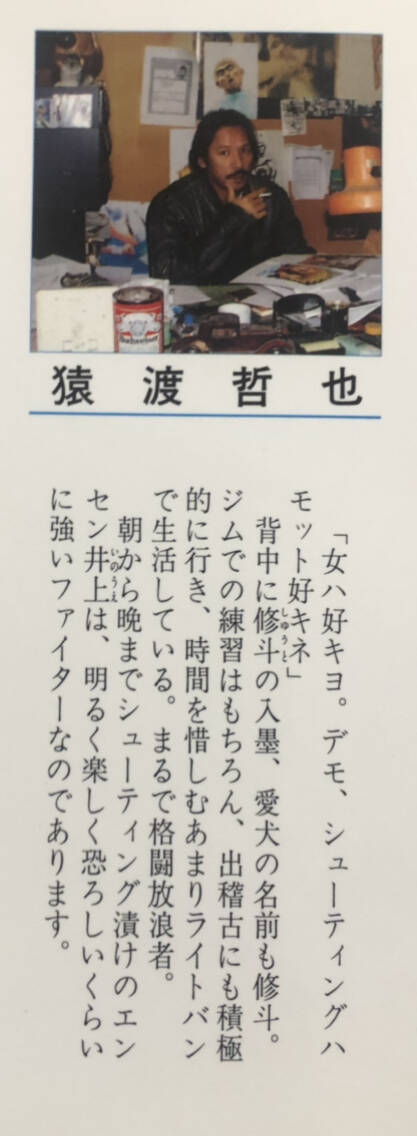 Budweiser
猿渡哲也
「女ハ好キヨ。デモ、シューティングハ
モット好キネ」
背中に修斗の入墨、愛犬の名前も修斗。
しゅうと
ジムでの練習はもちろん、出稽古にも積極
的に行き、時間を惜しむあまりライトバン
で生活している。まるで格闘放浪者。
朝から晩までシューティング漬けのエン
セン井上は、明るく楽しく恐ろしいくらい
いのうえ
に強いファイターなのであります。